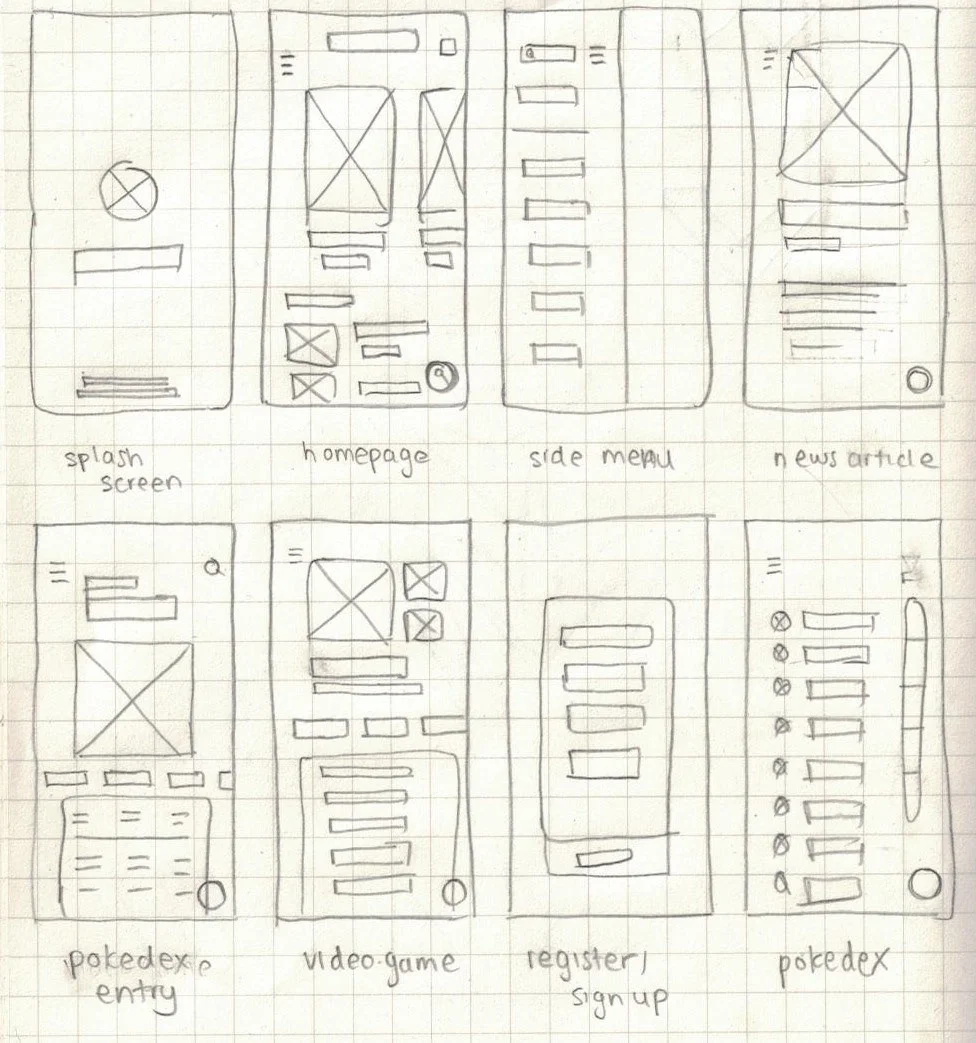 splash
screen
homepage
side menu
news article
pokedex
entry
video game
register/
sign up
pokedex